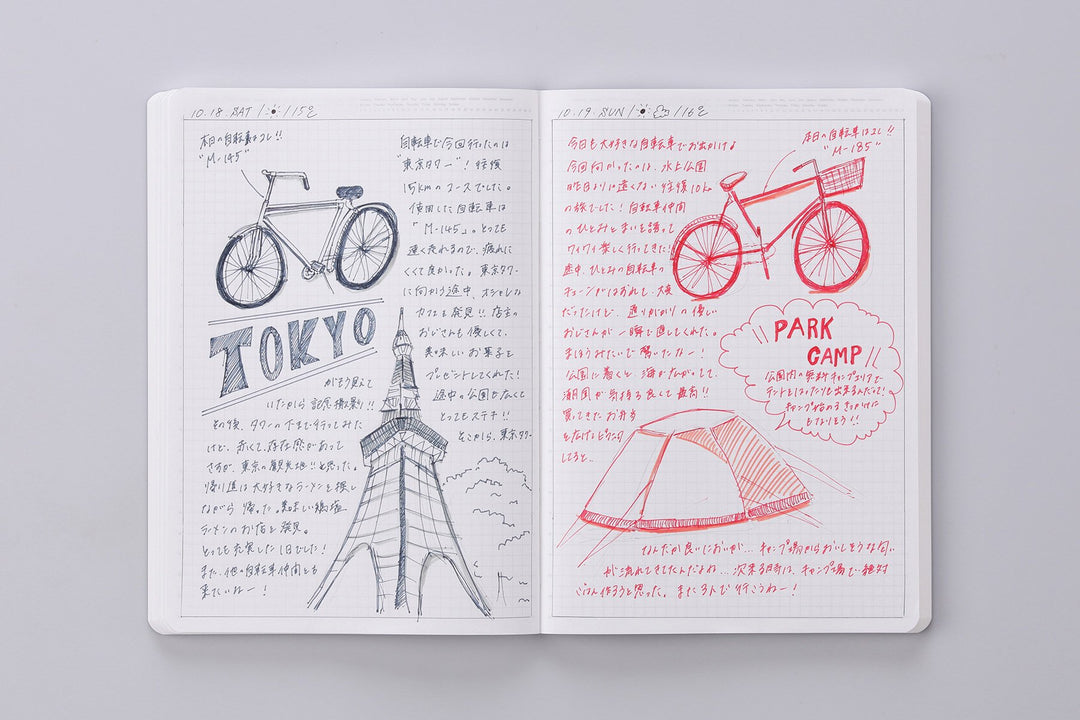 10.18.SAT / ☀ / 15℃
本日の自転車はコレ!!
"M-145"
自転車で今回行ったのは
"東京タワー"! 往復
15kmのコースでした。
使用した自転車は
「M-145」。とっても
速く走れるので、疲れに
くくて良かった。東京タワー
に向かう途中、オシャレな
カフェも発見!! 店主の
おじさんも優しくて、
美味しいお菓子を
プレゼントしてくれた!
途中の公園も
とってもステキ!!
そこから、東京タワー
TOKYO
がもう見えて
いたから 記念撮影!!
その後、タワーの下まで行ってみた
けど、赤くて、存在感があって
さすが、東京の観光地!! と思った。
帰り道は大好きなラーメンを探し
ながら 帰った。美味しい
ラーメンのお店を発見。
とっても充実した1日でした!
また、他の自転車仲間とも
来たいねー!
10.19.SUN / ☀ ☁ / 16℃
本日の自転車はコレ!!
"M-185"
今日も大好きな自転車でお出かけ♩
今回向かったのは、水上公園
昨日よりは遠くない 往復10km
の旅でした! 自転車仲間
のひとみとまいを誘って
ワイワイ楽しく行ってきた!
途中、ひとみの自転車の
チェーンがはずれし、大変
だったけど、通りがかりの優しい
おじさんが 一瞬で直してくれた。
まほうみたいで 驚いたなー!
公園に着くと、海がながってて、
潮風が気持ち良くて 最高!!
買ってきたお弁当
を広げピクニック
してると、
PARK
CAMP
公園内の無料キャンプエリアで
テントをはったりも出来るんだって!
キャンプ始めるきっかけに
もなりそう!!
なんだか良いにおいが… キャンプ場からおいしそうな匂い
が流れてきてたんだよね… 次来る時は、キャンプ場で絶対
ごはん作ろうと思った。また3人で行こうねー!